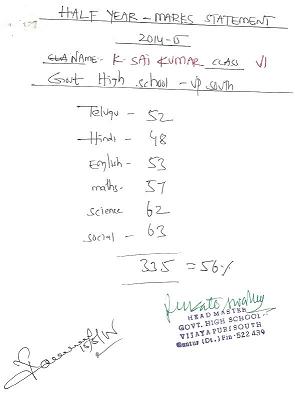 HALF YEAR - MARKS STATEMENT
2014-15
NAME - K. SAI KUMAR CLASS VI
Govt High school - VP south
Telugu - 52
Hindi - 48
English - 53
maths - 57
science - 62
social - 63
335 = 56%
HEAD MASTER
GOVT. HIGH SCHOOL
VIJAYAPURI SOUTH
Guntur (Dt.) Pin - 522 439